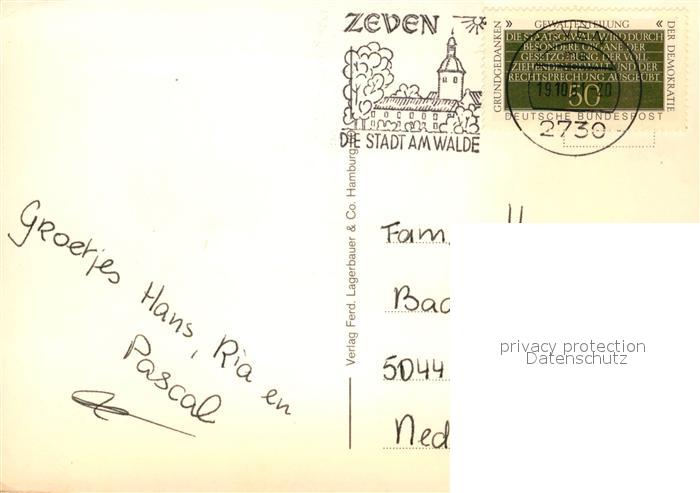 ZEVEN
DIE STADT AM WALDE
GRUNDGEDANKEN
» GEWALTENTEILUNG «
DER DEMOKRATIE
DIE STAATSGEWALT WIRD DURCH
BESONDERE ORGANE DER
GESETZGEBUNG, DER VOLL
ZIEHENDEN GEWALT UND DER
RECHTSPRECHUNG AUSGEÜBT
50
DEUTSCHE BUNDESPOST
2730
Groetjes
Hans, Ria en
Pascal
Verlag Ferd. Lagerbauer & Co. Hamburg
Fam.
5044
privacy protection
Datenschutz